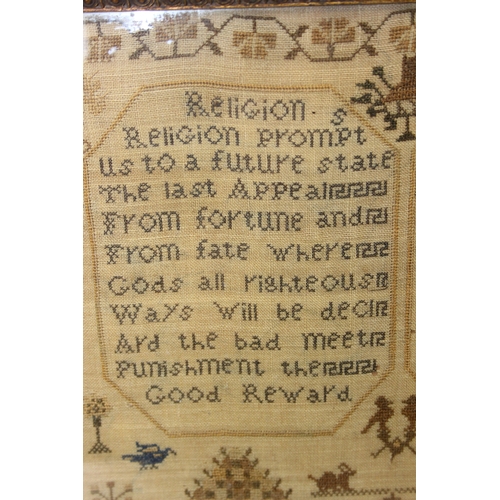 Religion
Religion prompts
us to a future state
The last Appeal
From fortune and
From fate where
Gods all righteous
Ways will be decl
Ard the bad meet
Punishment the
Good Reward